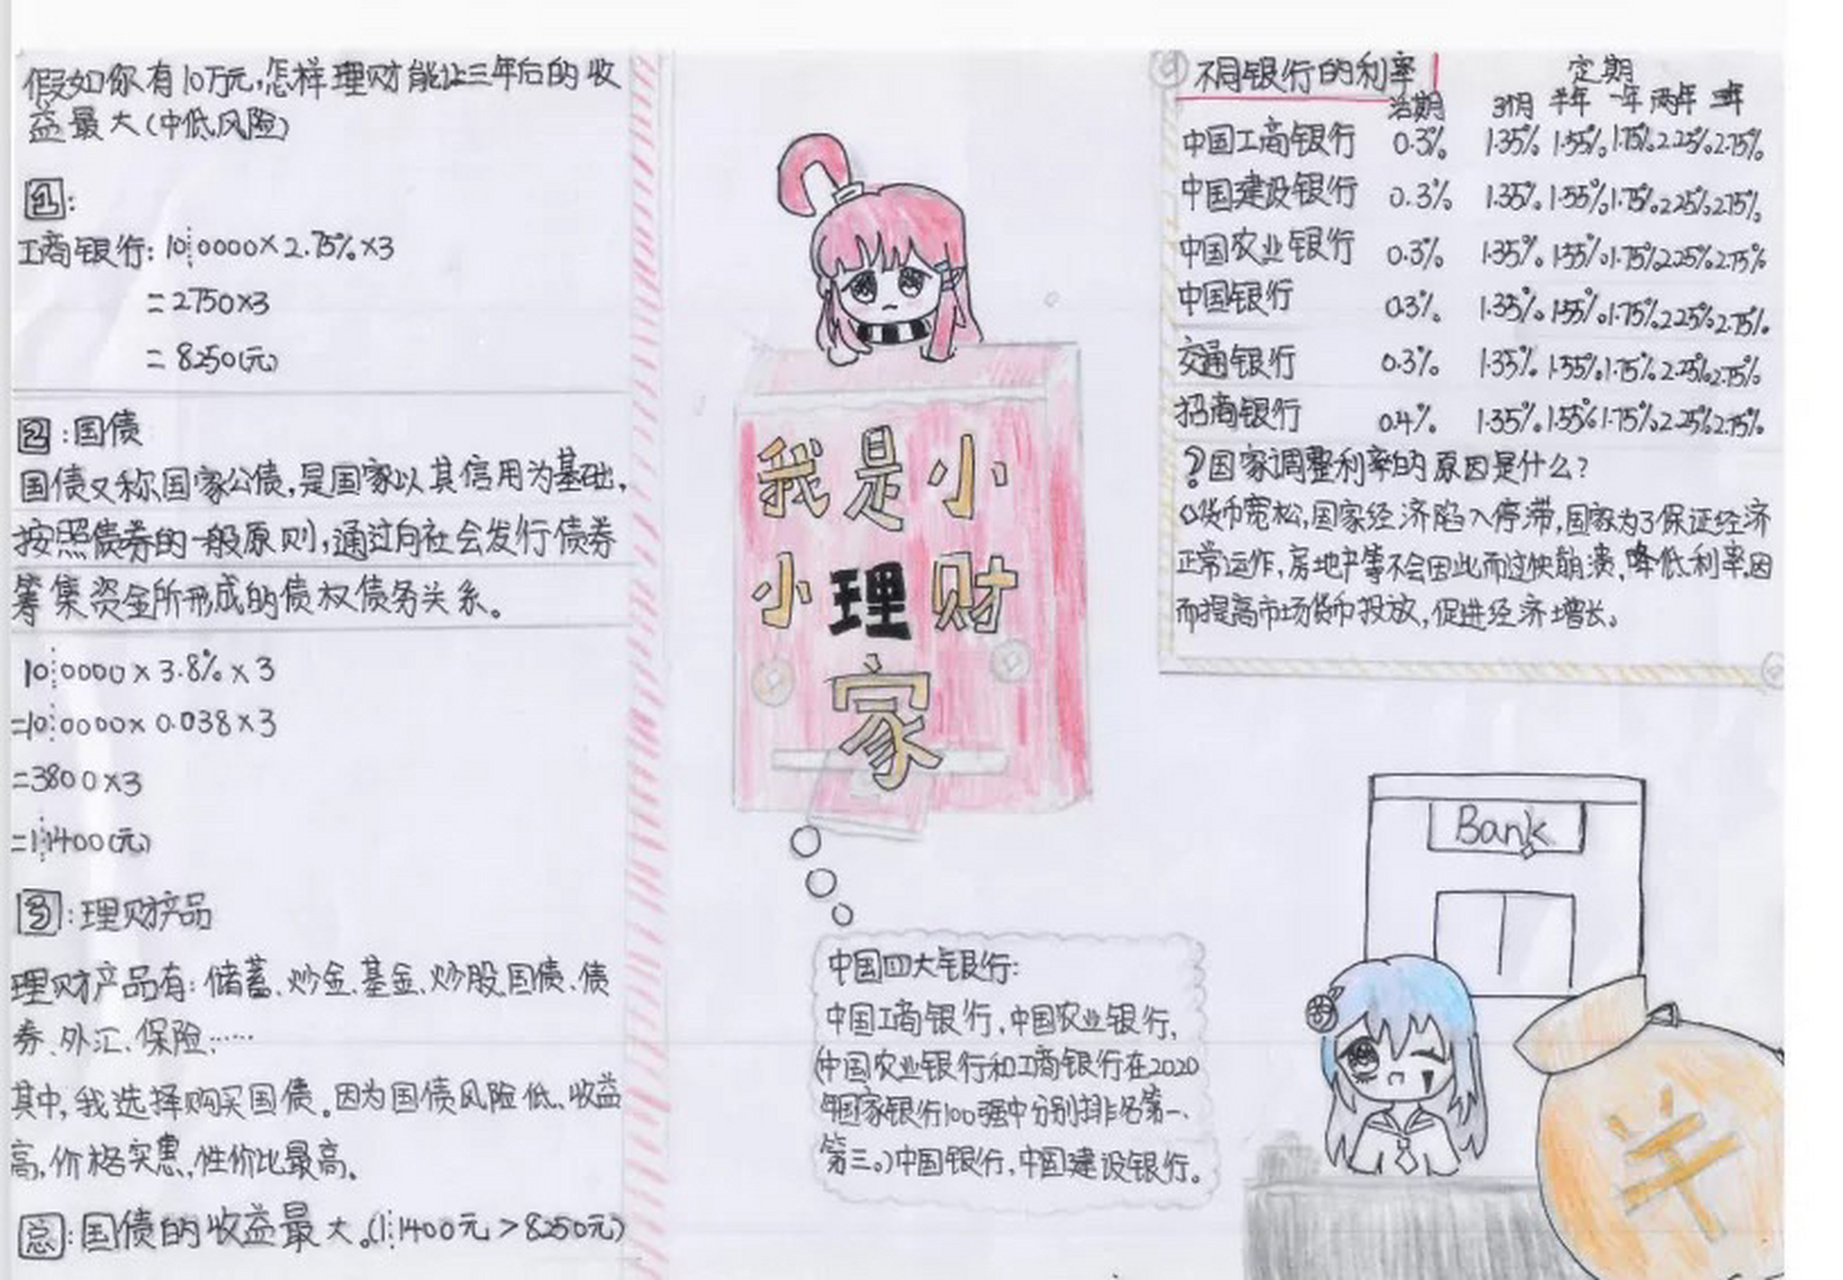 假如你有10万元,怎样理财能让三年后的收
益最大(中低风险)
1:
工商银行: 10┊0000×2.75%×3
=2750×3
=8250(元)
2:国债
国债又称国家公债,是国家以其信用为基础,
按照债券的一般原则,通过向社会发行债券
筹集资金所形成的债权债务关系。
10┊0000×3.8%×3
=10┊0000×0.038×3
=3800×3
=1┊1400(元)
3:理财产品
理财产品有:储蓄、炒金、基金、炒股、国债、债
券、外汇、保险……
其中,我选择购买国债。因为国债风险低、收益
高,价格实惠,性价比最高。
总:国债的收益最大。(1┊1400元>8250元)
我是小
小理财
家
中国四大银行:
中国工商银行,中国农业银行,
(中国农业银行和工商银行在2020
年国家银行100强中分别排名第一、
第三。)中国银行,中国建设银行。
不同银行的利率 定期
活期 3个月 半年 一年 两年 三年
中国工商银行 0.3% 1.35% 1.55% 1.75% 2.25% 2.75%
中国建设银行 0.3% 1.35% 1.55% 1.75% 2.25% 2.75%
中国农业银行 0.3% 1.35% 1.55% 1.75% 2.25% 2.75%
中国银行 0.3% 1.35% 1.55% 1.75% 2.25% 2.75%
交通银行 0.3% 1.35% 1.55% 1.75% 2.25% 2.75%
招商银行 0.4% 1.35% 1.55% 1.75% 2.25% 2.75%
?国家调整利率的原因是什么?
货币宽松,国家经济陷入停滞,国家为了保证经济
正常运作,房地产等不会因此而过快崩溃,降低利率,因
而提高市场货币投放,促进经济增长。
Bank